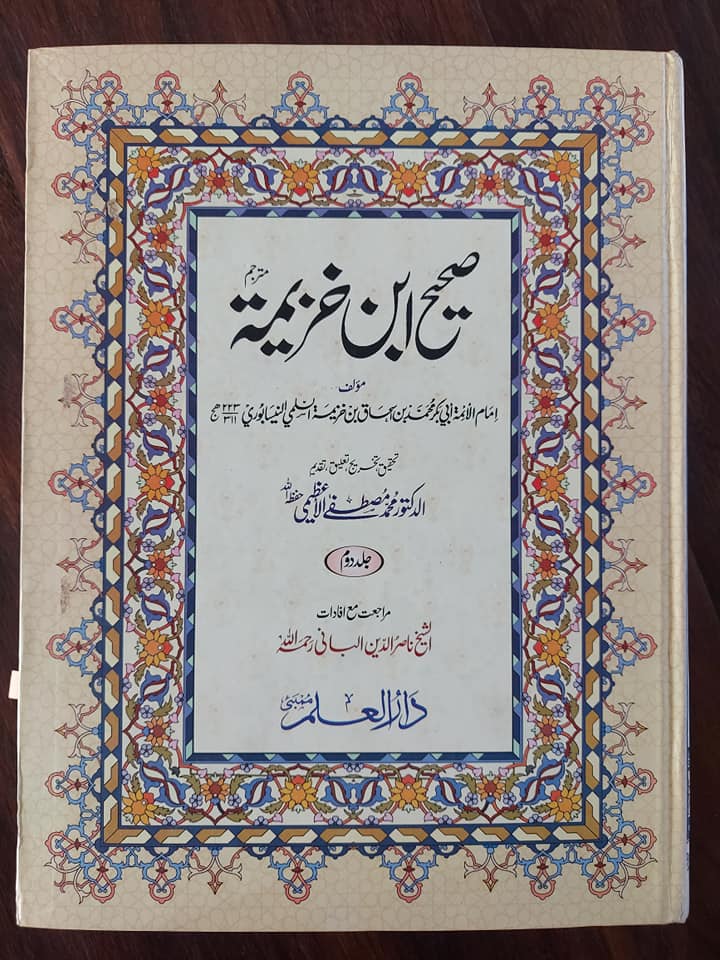 صحیح ابن خزیمة مترجم
مؤلف
إمام الأئمة أبي بكر محمد بن إسحاق بن خزيمة السلمي النيسابوري ۲۲۳ ۳۱۱ هج
تحقیق، تخریج، تعلیق، تقدیم
الدکتور محمد مصطفے الاعظمی حفظہ اللہ
جلد دوم
مراجعت مع افادات
الشیخ ناصر الدین البانی رحمہ اللہ
دار العلم ممبئی